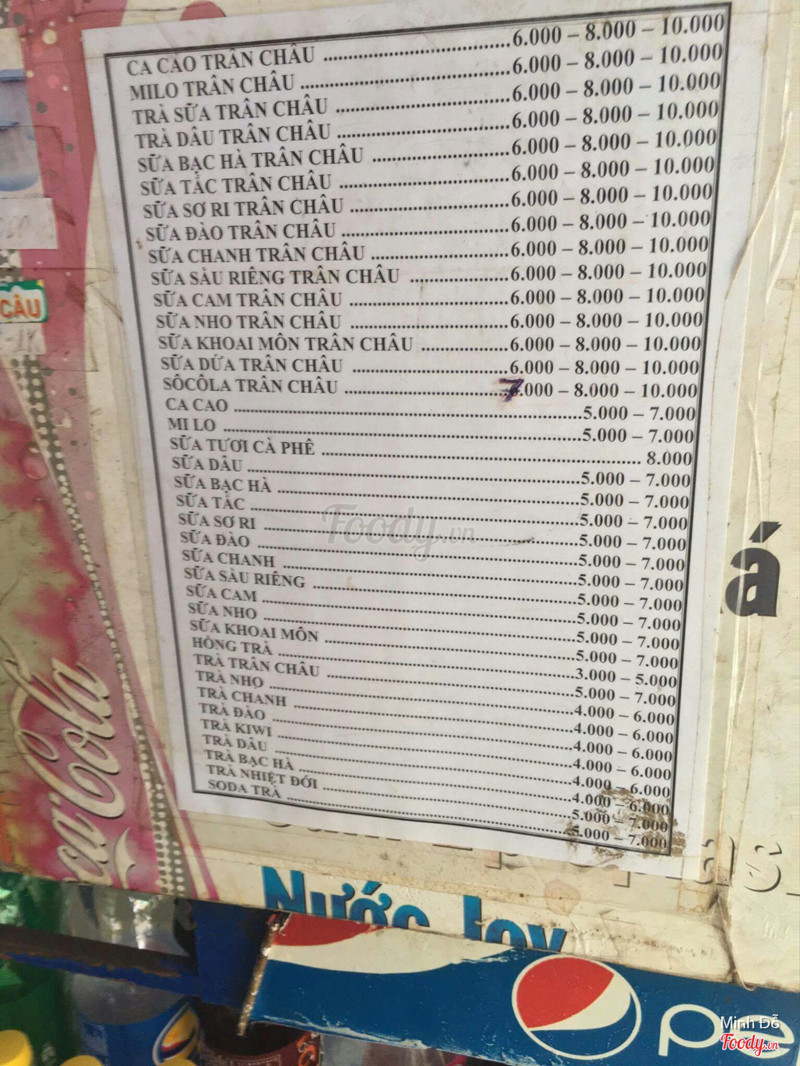 CA CAO TRÂN CHÂU ........ 6.000 – 8.000 – 10.000
MILO TRÂN CHÂU ........ 6.000 – 8.000 – 10.000
TRÀ SỮA TRÂN CHÂU ........ 6.000 – 8.000 – 10.000
TRÀ DÂU TRÂN CHÂU ........ 6.000 – 8.000 – 10.000
SỮA BẠC HÀ TRÂN CHÂU ........ 6.000 – 8.000 – 10.000
SỮA TẮC TRÂN CHÂU ........ 6.000 – 8.000 – 10.000
SỮA SƠ RI TRÂN CHÂU ........ 6.000 – 8.000 – 10.000
SỮA ĐÀO TRÂN CHÂU ........ 6.000 – 8.000 – 10.000
SỮA CHANH TRÂN CHÂU ........ 6.000 – 8.000 – 10.000
SỮA SẦU RIÊNG TRÂN CHÂU ........ 6.000 – 8.000 – 10.000
SỮA CAM TRÂN CHÂU ........ 6.000 – 8.000 – 10.000
SỮA NHO TRÂN CHÂU ........ 6.000 – 8.000 – 10.000
SỮA KHOAI MÔN TRÂN CHÂU ........ 6.000 – 8.000 – 10.000
SỮA DỨA TRÂN CHÂU ........ 6.000 – 8.000 – 10.000
SÔCÔLA TRÂN CHÂU ........ 7.000 – 8.000 – 10.000
CA CAO ........ 5.000 – 7.000
MI LO ........ 5.000 – 7.000
SỮA TƯƠI CÀ PHÊ ........ 8.000
SỮA DÂU ........ 5.000 – 7.000
SỮA BẠC HÀ ........ 5.000 – 7.000
SỮA TẮC ........ 5.000 – 7.000
SỮA SƠ RI ........ 5.000 – 7.000
SỮA ĐÀO ........ 5.000 – 7.000
SỮA CHANH ........ 5.000 – 7.000
SỮA SẦU RIÊNG ........ 5.000 – 7.000
SỮA CAM ........ 5.000 – 7.000
SỮA NHO ........ 5.000 – 7.000
SỮA KHOAI MÔN ........ 5.000 – 7.000
HỒNG TRÀ ........ 3.000 – 5.000
TRÀ TRÂN CHÂU ........ 5.000 – 7.000
TRÀ NHO ........ 4.000 – 6.000
TRÀ CHANH ........ 4.000 – 6.000
TRÀ ĐÀO ........ 4.000 – 6.000
TRÀ KIWI ........ 4.000 – 6.000
TRÀ DÂU ........ 4.000 – 6.000
TRÀ BẠC HÀ ........ 4.000 – 6.000
TRÀ NHIỆT ĐỚI ........ 5.000 – 7.000
SODA TRÀ ........ 5.000 – 7.000
CÂU
Foody.vn
á
ca Cola
Nước Joy
pe
Minh Đỗ
Foody.vn